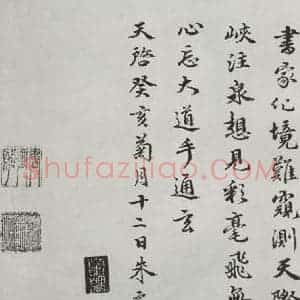 書家化境難窺測天際
峽注泉想見彩毫飛
心忘大道手通玄
天啓癸亥菊月十二日朱
Shufaziliao.COM